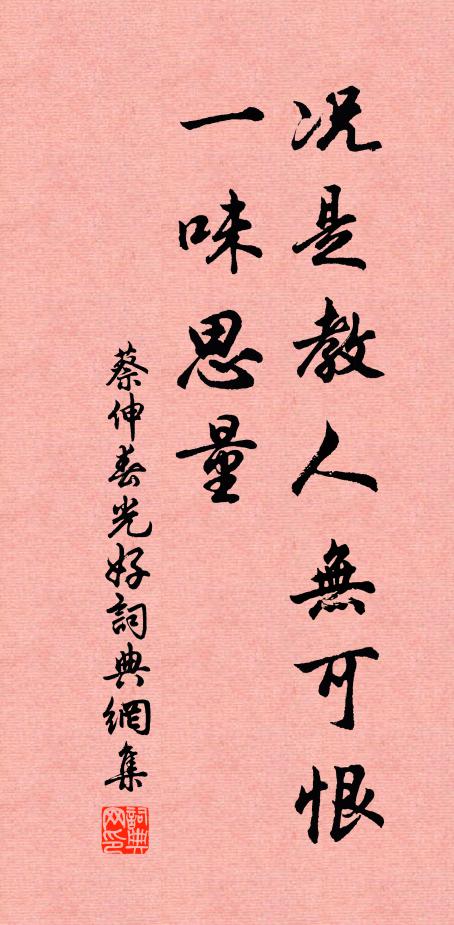 况是教人無可恨
一味思量
蔡伸春光好詞典網集
詞典网印